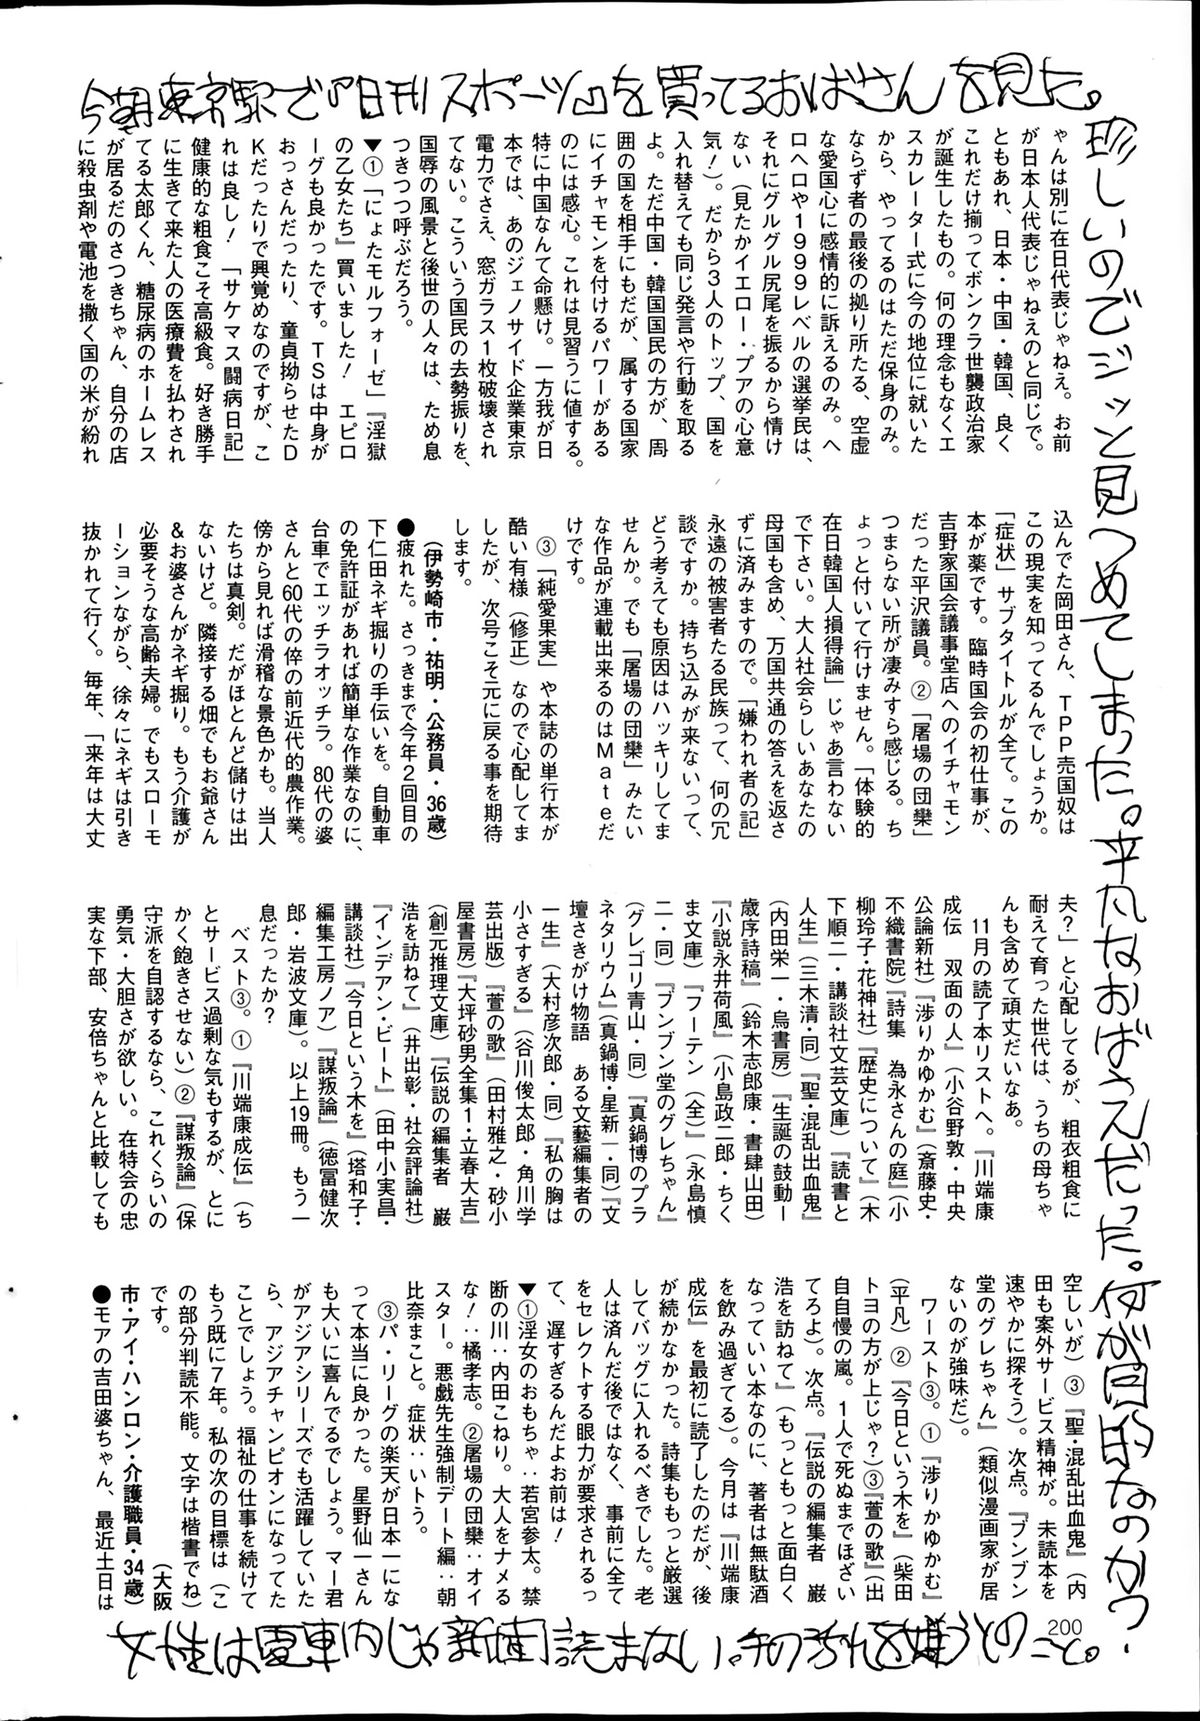 今朝東京駅で『日刊スポーツ』を買ってるおばさんを見た。
珍しいのでジッと見つめてしまった。平凡なおばさんだった。何が目的なのか?
ゃんは別に在日代表じゃねえ。お前
が日本人代表じゃねえのと同じで。
ともあれ、日本・中国・韓国、良く
これだけ揃ってボンクラ世襲政治家
が誕生したもの。何の理念もなくエ
スカレーター式に今の地位に就いた
から、やってるのはただ保身のみ。
ならず者の最後の拠り所たる、空虚
な愛国心に感情的に訴えるのみ。ヘ
ロヘロや1999レベルの選挙民は、
それにグルグル尻尾を振るから情け
ない(見たかイエロー・プアの心意
気!)。だから3人のトップ、国を
入れ替えても同じ発言や行動を取る
よ。ただ中国・韓国国民の方が、周
囲の国を相手にもだが、属する国家
にイチャモンを付けるパワーがある
のには感心。これは見習うに値する。
特に中国なんて命懸け。一方我が日
本では、あのジェノサイド企業東京
電力でさえ、窓ガラス1枚破壊され
てない。こういう国民の去勢振りを、
国辱の風景と後世の人々は、ため息
つきつつ呼ぶだろう。
▼①「にょたモルフォーゼ」『淫獄
の乙女たち』買いました! エピロ
ーグも良かったです。TSは中身が
おっさんだったり、童貞拗らせたD
Kだったりで興覚めなのですが、こ
れは良し! 「サケマス闘病日記」
健康的な粗食こそ高級食。好き勝手
に生きて来た人の医療費を払わされ
てる太郎くん、糖尿病のホームレス
が居るだのさつきちゃん、自分の店
に殺虫剤や電池を撒く国の米が紛れ
込んでた岡田さん、TPP売国奴は
この現実を知ってるんでしょうか。
「症状」サブタイトルが全て。この
本が薬です。臨時国会の初仕事が、
吉野家国会議事堂店へのイチャモン
だった平沢議員。②「屠場の団欒」
つまらない所が凄みすら感じる。ち
ょっと付いて行けません。「体験的
在日韓国人損得論」じゃあ言わない
で下さい。大人社会らしいあなたの
母国も含め、万国共通の答えを返さ
ずに済みますので。「嫌われ者の記」
永遠の被害者たる民族って、何の冗
談ですか。持ち込みが来ないって、
どう考えても原因はハッキリしてま
せんか。でも「屠場の団欒」みたい
な作品が連載出来るのはMateだ
けです。
③「純愛果実」や本誌の単行本が
酷い有様(修正)なので心配してま
したが、次号こそ元に戻る事を期待
します。
(伊勢崎市・祐明・公務員・36歳)
●疲れた。さっきまで今年2回目の
下仁田ネギ掘りの手伝いを。自動車
の免許証があれば簡単な作業なのに、
台車でエッチラオッチラ。80代の婆
さんと60代の倅の前近代的農作業。
傍から見れば滑稽な景色かも。当人
たちは真剣。だがほとんど儲けは出
ないけど。隣接する畑でもお爺さん
&お婆さんがネギ掘り。もう介護が
必要そうな高齢夫婦。でもスローモ
ーションながら、徐々にネギは引き
抜かれて行く。毎年、「来年は大丈
夫?」と心配してるが、粗衣粗食に
耐えて育った世代は、うちの母ちゃ
んも含めて頑丈だいなあ。
11月の読了本リストへ。『川端康
成伝 双面の人』(小谷野敦・中央
公論新社)『渉りかゆかむ』(斎藤史・
不織書院)『詩集 為永さんの庭』(小
柳玲子・花神社)『歴史について』(木
下順二・講談社文芸文庫)『読書と
人生』(三木清・同)『聖・混乱出血鬼』
(内田栄一・烏書房)『生誕の鼓動―
歳序詩稿』(鈴木志郎康・書肆山田)
『小説永井荷風』(小島政二郎・ちく
ま文庫)『フーテン(全)』(永島慎
二・同)『ブンブン堂のグレちゃん』
(グレゴリ青山・同)『真鍋博のプラ
ネタリウム』(真鍋博・星新一・同)『文
壇さきがけ物語 ある文藝編集者の
一生』(大村彦次郎・同)『私の胸は
小さすぎる』(谷川俊太郎・角川学
芸出版)『萱の歌』(田村雅之・砂小
屋書房)『大坪砂男全集1・立春大吉』
(創元推理文庫)『伝説の編集者 巌
浩を訪ねて』(井出彰・社会評論社)
『インデアン・ビート』(田中小実昌・
講談社)『今日という木を』(塔和子・
編集工房ノア)『謀叛論』(徳冨健次
郎・岩波文庫)。以上19冊。もう一
息だったか?
ベスト③。①『川端康成伝』(ち
とサービス過剰な気もするが、とに
かく飽きさせない)②『謀叛論』(保
守派を自認するなら、これくらいの
勇気・大胆さが欲しい。在特会の忠
実な下部、安倍ちゃんと比較しても
空しいが)③『聖・混乱出血鬼』(内
田も案外サービス精神が。未読本を
速やかに探そう)。次点。『ブンブン
堂のグレちゃん』(類似漫画家が居
ないのが強味だ)。
ワースト③。①『渉りかゆかむ』
(平凡)②『今日という木を』(柴田
トヨの方が上じゃ?)③『萱の歌』(出
自自慢の嵐。1人で死ぬまでほざい
てろよ)。次点。『伝説の編集者 巌
浩を訪ねて』(もっともっと面白く
なっていい本なのに、著者は無駄酒
を飲み過ぎてる)。今月は『川端康
成伝』を最初に読了したのだが、後
が続かなかった。詩集ももっと厳選
してバッグに入れるべきでした。老
人は済んだ後ではなく、事前に全て
をセレクトする眼力が要求されるっ
て、遅すぎるんだよお前は!
▼①淫女のおもちゃ‥若宮参太。禁
断の川‥内田こねり。大人をナメる
な!‥橘孝志。②屠場の団欒‥オイ
スター。悪戯先生強制デート編‥朝
比奈まこと。症状‥いトう。
③パ・リーグの楽天が日本一にな
って本当に良かった。星野仙一さん
も大いに喜んでるでしょう。マー君
がアジアシリーズでも活躍していた
ら、アジアチャンピオンになってた
ことでしょう。福祉の仕事を続けて
もう既に7年。私の次の目標は(こ
の部分判読不能。文字は楷書でね)
です。
(大阪
市・アイ・ハンロン・介護職員・34歳)
●モアの吉田婆ちゃん、最近土日は
200
女性は電車内じゃ新聞読まない。手の汚れを嫌うとのこと。